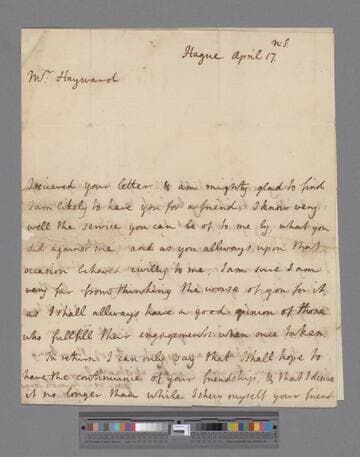 Hague April 17. n.s.
Mr. Hayward
I recieved your letter & am mighty glad to find
I am likely to have you for a friend, I know very
well the service you can be of to me by what you
did against me, and as you allways upon that
occasion behaved civilly to me, I am sure I am
very far from thinking the worse of you for it,
as I shall allways have a good opinion of those
who fullfill their engagements when once taken.
In return I can only say that I shall hope to
have the continuance of your friendship, & that I desire
it no longer than while I shew myself your friend